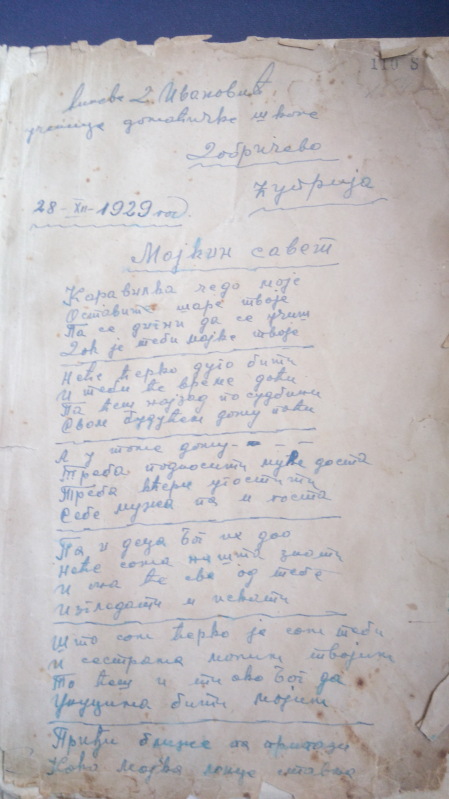 119 S
2. Ивановић
ученице домаћичке школе
Добричево
Ћуприја
28-XII-1929 год.
Мајкин савет
чедо моје
Оставити шаре твоје
Па се дигни да се учиш
Док је теби мајке твоје
Неће ћерко дуго бити
И теби ће време доћи
Па ћеш најзад по судбини
Свом будућем дому поћи
А у томе дому - - - -
Треба подносити муке доста
Треба ћерко угостити
Себе мужа па и госта
Па и деца Бог их дао
Неће сама ништа знати
И она ће све од тебе
Изгледати и искати
Што сам ћерко ја сам теби
И сестрама твојим
То ћеш и ти ако Бог да
бити мојим
Приђи ближе па
Како мајка лонце